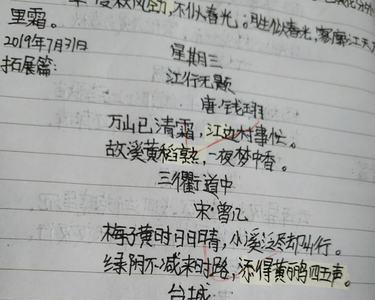 劲,不似春光。胜似春光,寥廓江天万
里霜。
2019年7月31日 星期三
拓展篇: 江行无题
唐·钱珝
万山已清霜,江边村事忙。
故溪黄稻熟,一夜梦中香。
三衢道中
宋·曾几
梅子黄时日日晴,小溪泛尽却山行。
绿阴不减来时路,添得黄鹂四五声。
台城